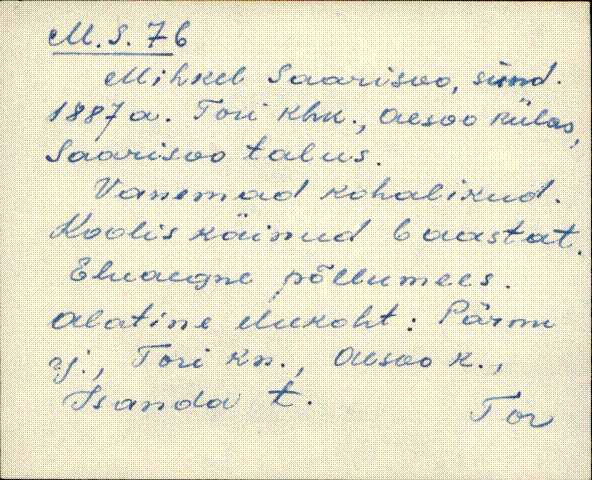 M. S. 76
Mihkel Saarisoo, sünd.
1887 a. Tori khk., Aesoo külas,
Saarisoo talus.
Vanemad kohalikud.
Koolis käinud 6 aastat.
Eluaegne põllumees.
Alatine elukoht: Pärnu
rj., Tori kn., Aesoo k.,
Isanda t.
Tor